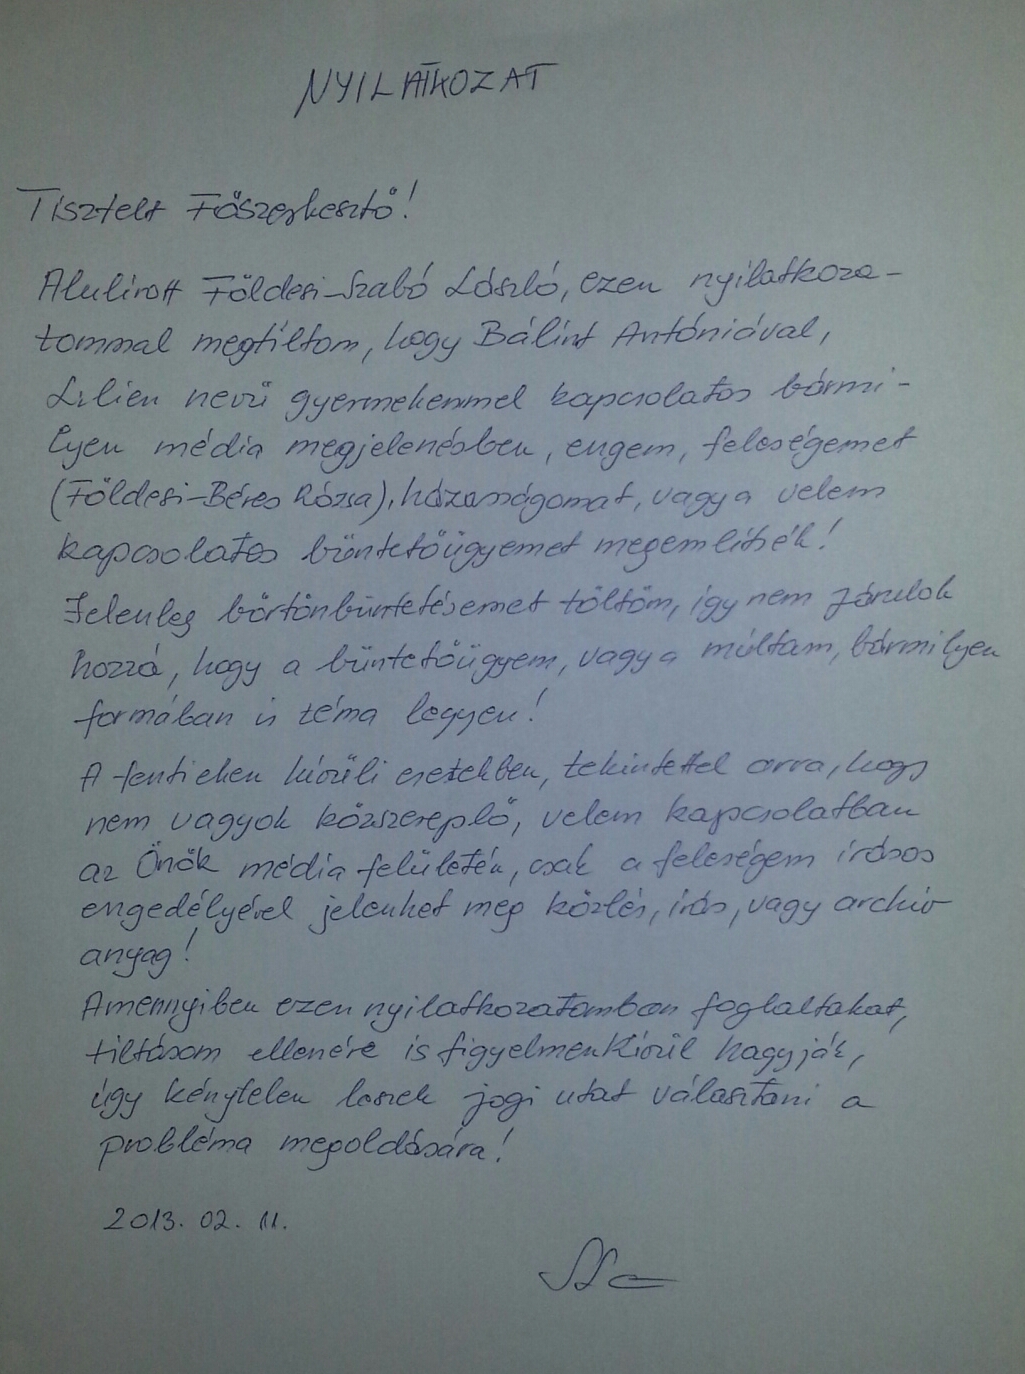 NYILATKOZAT
Tisztelt Főszerkesztő!
Alulírott Földesi-Szabó László, ezen nyilatkoza-
tommal megtiltom, hogy Bálint Antóniával,
Lilien nevű gyermekemmel kapcsolatos bármi-
lyen média megjelenésben, engem, feleségemet
(Földesi-Béres Rózsa), házasságomat, vagy a velem
kapcsolatos büntetőügyemet megemlítsék!
Jelenleg börtönbüntetésemet töltöm, így nem járulok
hozzá, hogy a büntetőügyem, vagy a múltam, bármilyen
formában is téma legyen!
A fentieken kívüli esetekben, tekintettel arra, hogy
nem vagyok közszereplő, velem kapcsolatban
az Önök média felületén, csak a feleségem írásos
engedélyével jelenhet meg közlés, írás, vagy archív
anyag!
Amennyiben ezen nyilatkozatomban foglaltakat,
tiltásom ellenére is figyelmen kívül hagyják,
úgy kénytelen leszek jogi utat választani a
probléma megoldására!
2013. 02. 11.